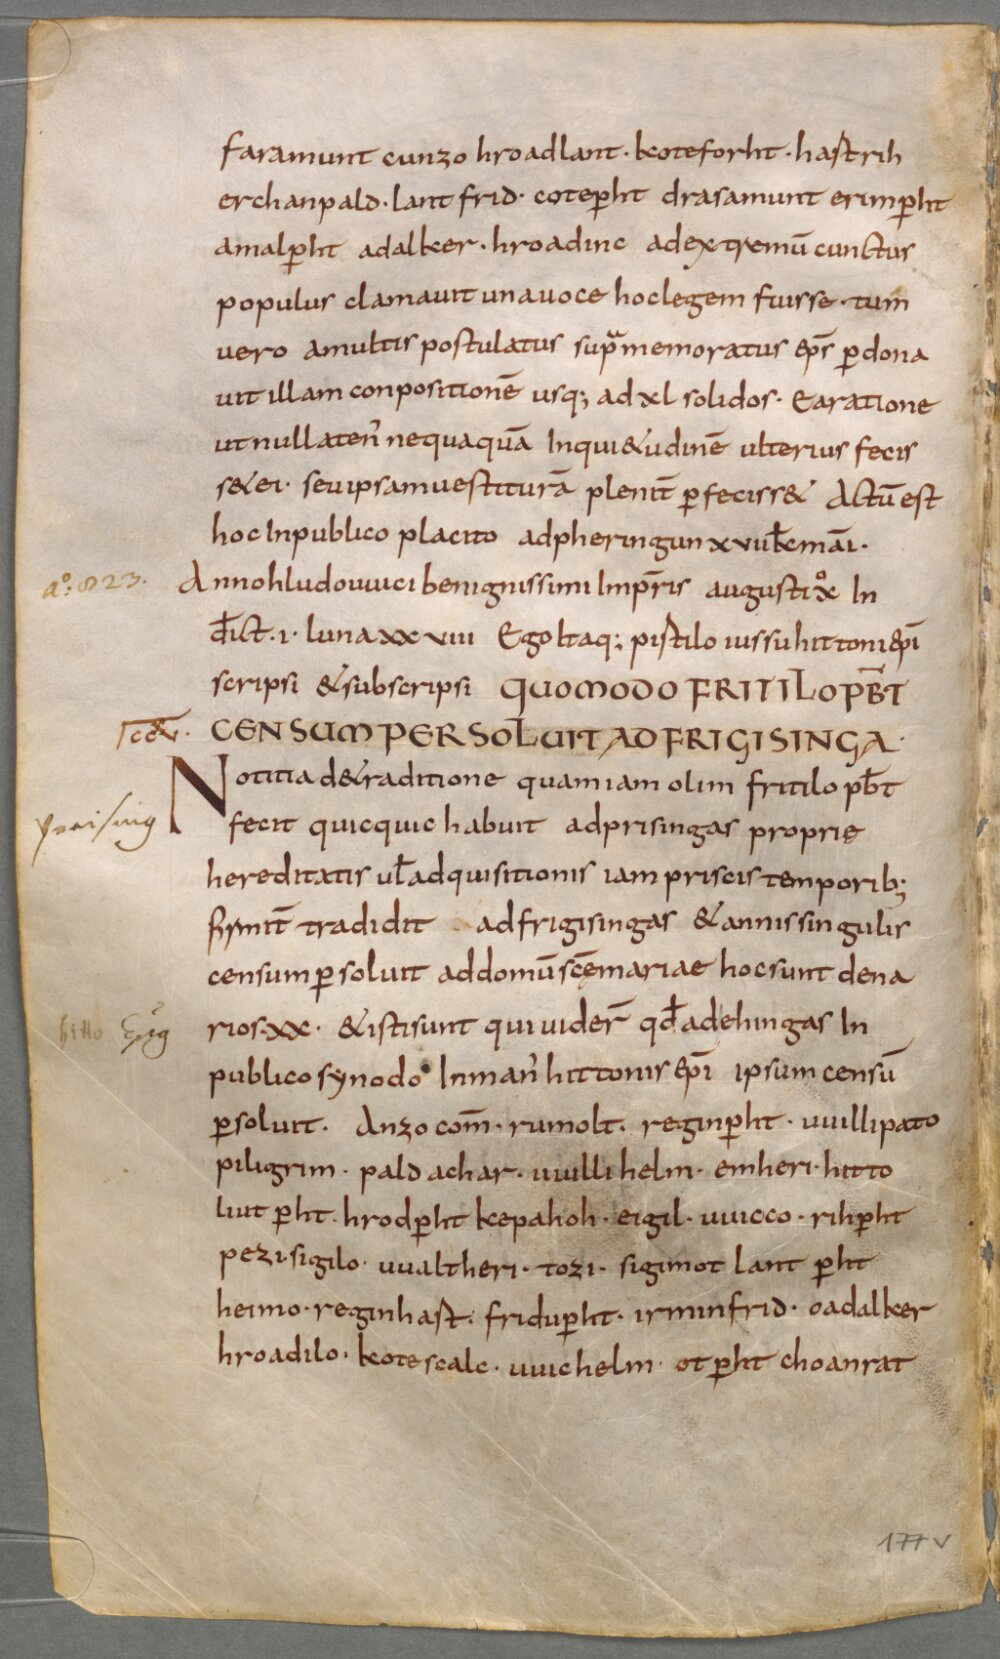 faramunt cunzo hroadlant · koteforht · hastrih
erchanpald · lantfrid · cotep̄ht drasamunt erimp̄ht
amalp̄ht adalker · hroadinc adextremū cunctus
populus clamauit unauoce hoclegem fuisse · tum
uero amultis postulatus sup̄memoratus ep̄s p̄dona
uit illam conpositionē usq; ad xl solidos · Earatione
ut nullaten̄ nequaquā Inqui&udinē ulterius fecis
s&ei · seuipsamuestiturā plenit̄ p̄feciss& Actū est
hoc Inpublico placito adpheringun xvii kł māi ·
aº: 823.
Anno hludouuici benignissimi Imp̄ris augusti x In
d̄ict · i · luna xxviii Ego ltaq; pistilo iussu hittoni ep̄i
scripsi &subscripsi QUOMODO FRITILO PB̄T
CENSUM PERSOLUIT AD FRIGISINGA ·
Notitia de&raditione quam iam olim fritilo pb̄t
Preising
fecit quicquic habuit adprisingas proprie
hereditatis ul̄ adquisitionis iam priscis temporib;
firmit̄ tradidit adfrigisingas &annis singulis
censum p̄soluit addomū scē mariae hoc sunt dena
hitto
rios · xx · &isti sunt qui uider̄ qd̄ adehingas In
publico synodo Inman̄ hittonis ep̄i ipsum censū
p̄soluit. Anzo com̄ · rumolt · reginp̄ht · uuillipato
piligrim · paldachar · uuillihelm · emheri · hitto
liutp̄ht · hrodp̄ht kepahoh · eigil · uuicco · rihp̄ht
pezi · sigilo · uualtheri · tozi · sigimot lantp̄ht
heimo · reginhast · fridup̄ht · irminfrid · oadalker
hroadilo · kotescalc · uuichelm · otp̄ht choanrat
177 v